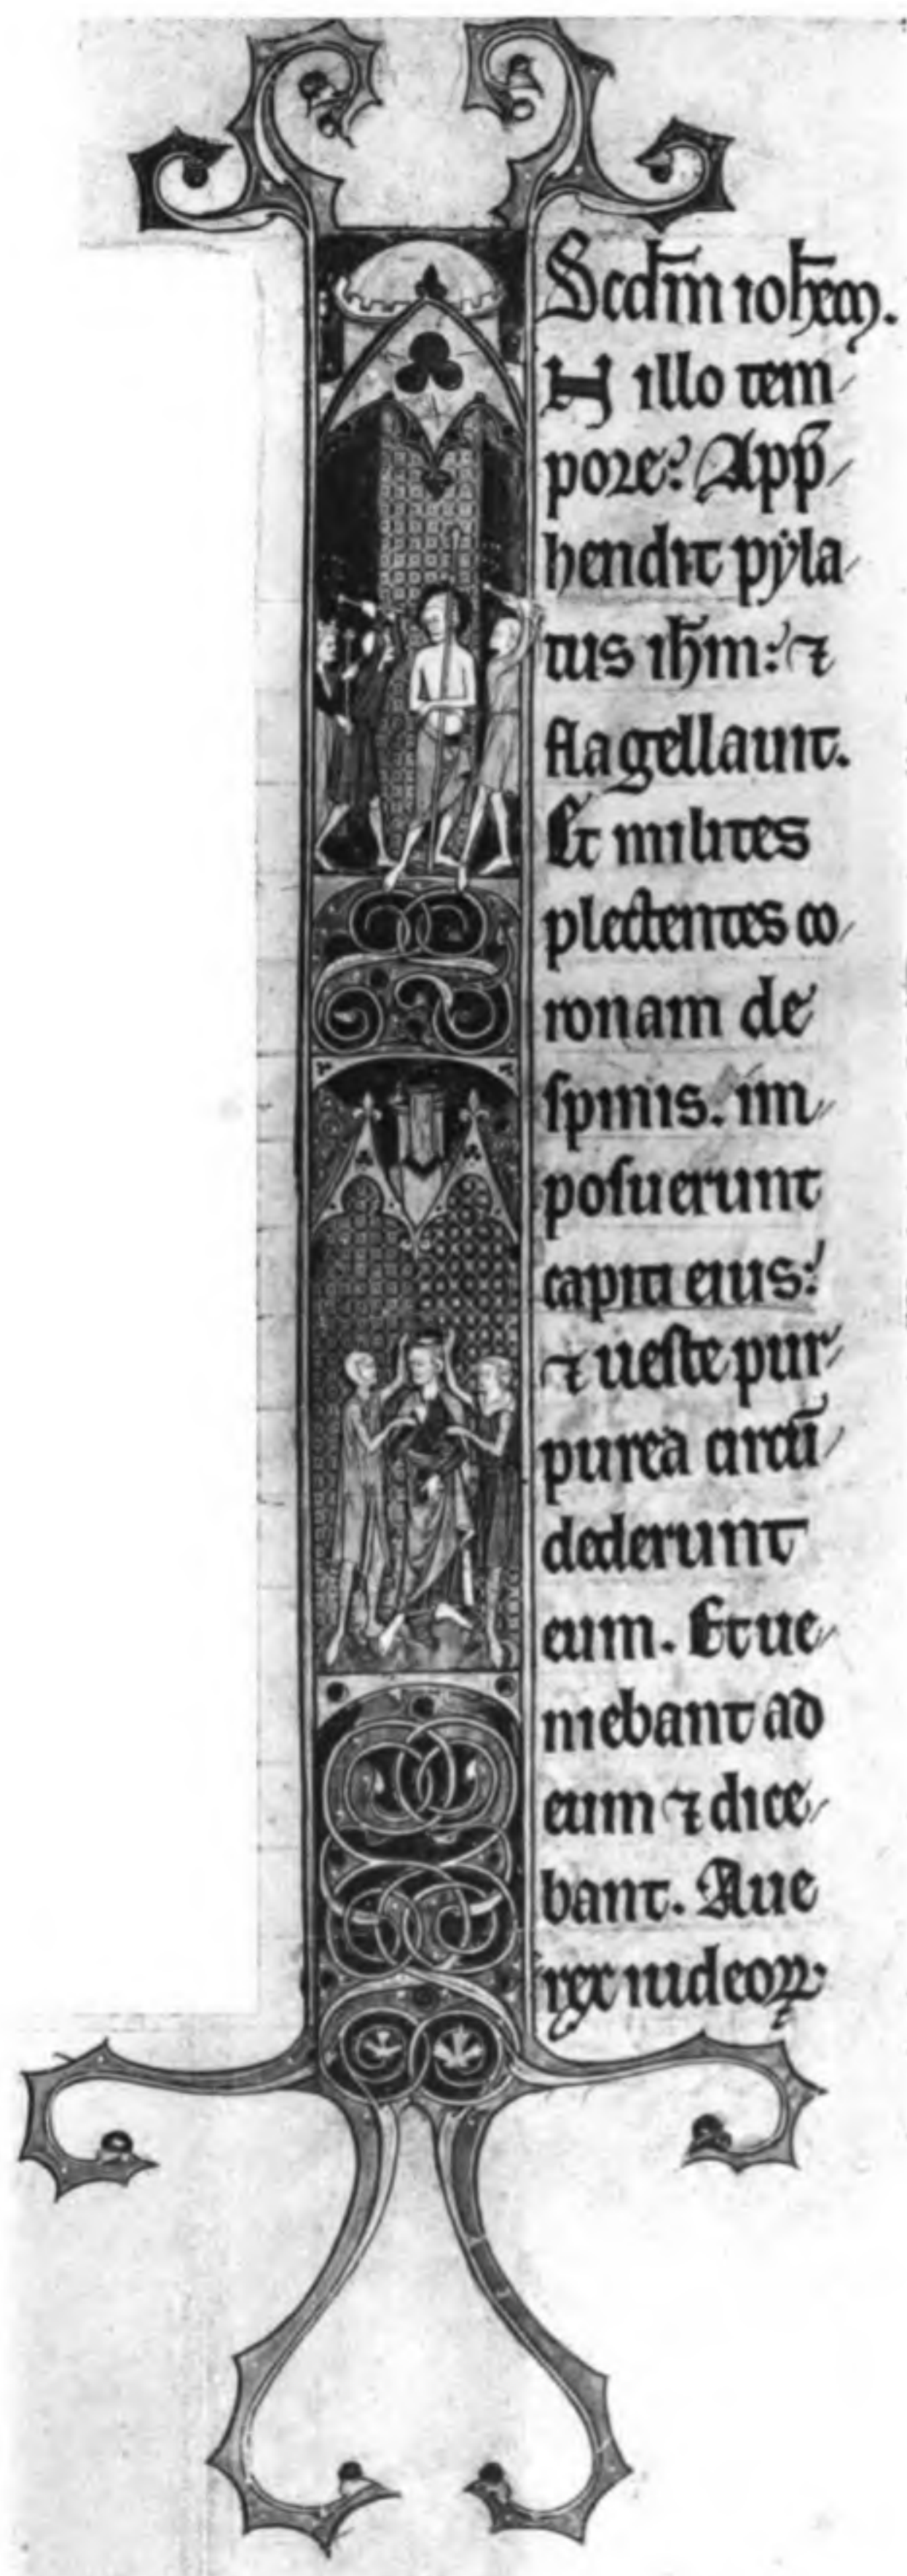 Scdm̄ ioh̄em.
N illo tem
pore: App̄
hendit pyla
tus ih̄m: ⁊
flagellauit.
Et milites
plectentes co
ronam de
spinis. im
posuerunt
capiti eius:
⁊ ueste pur
purea circū
dederunt
eum. Et ue
niebant ad
eum ⁊ dice
bant. Aue
rex iudeoꝝ